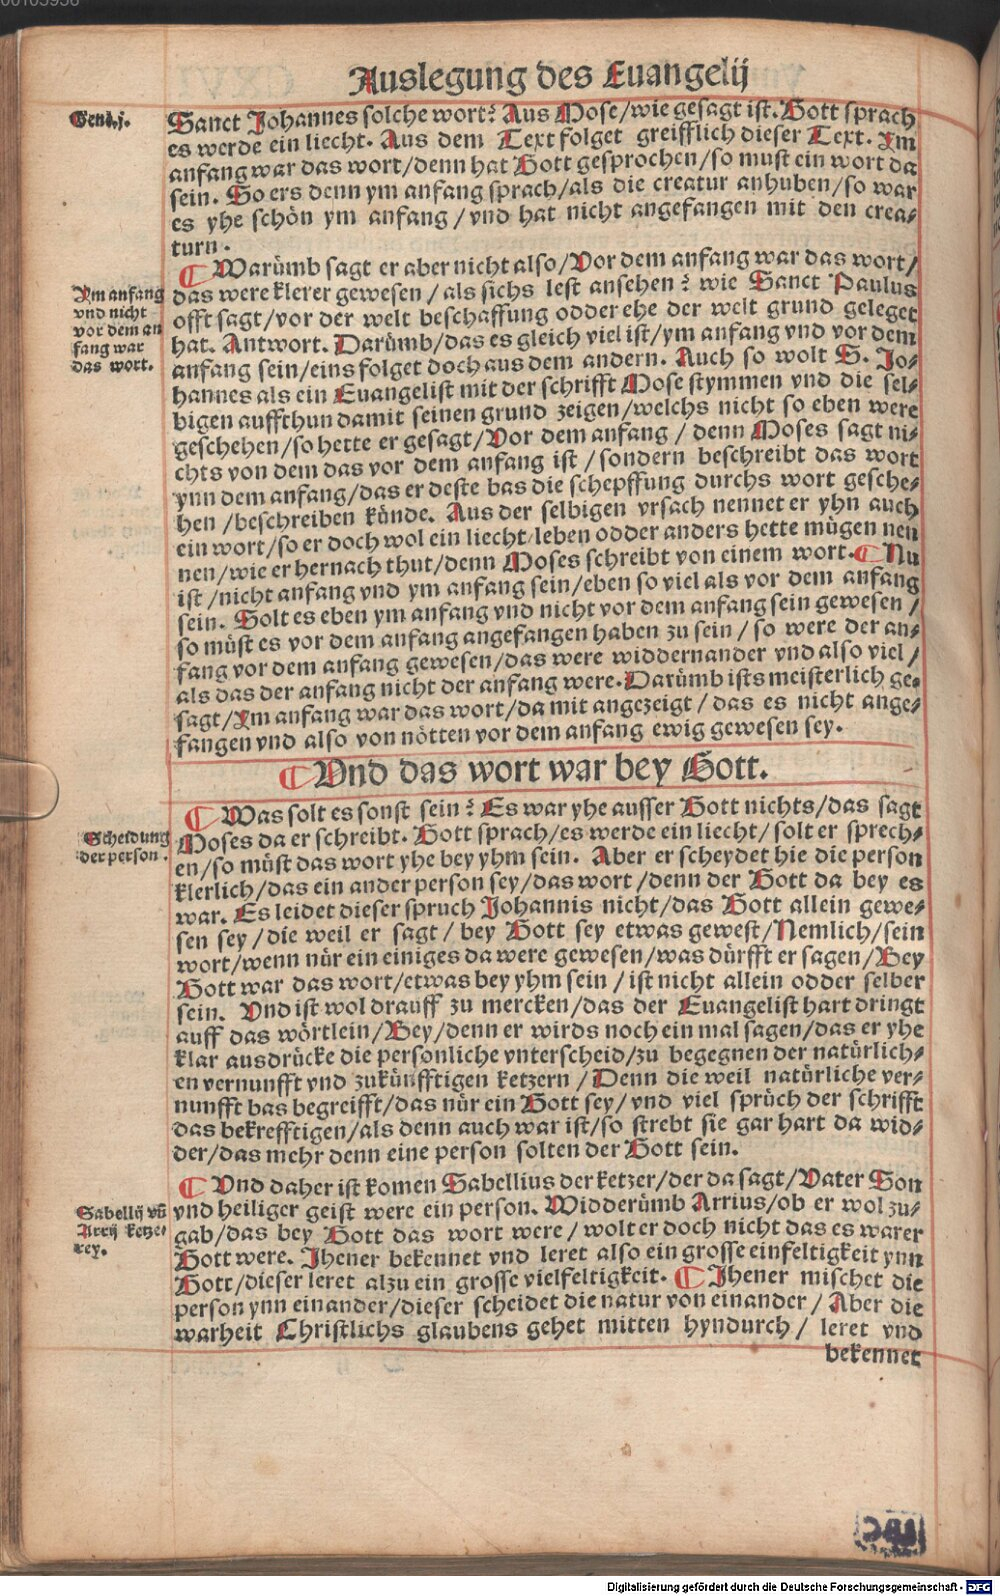 Auslegung des Euangelij
Genes.j.
Sanct Johannes solche wort? Aus Mose/wie gesagt ist. Gott sprach
es werde ein liecht. Aus dem Text folget greifflich dieser Text. Ym
anfang war das wort/denn hat Gott gesprochen/so must ein wort da
sein. So ers denn ym anfang sprach/als die creatur anhuben/so war
es yhe schön ym anfang/vnd hat nicht angefangen mit den crea⸗
turn.
¶ Warümb sagt er aber nicht also/Vor dem anfang war das wort/
Ym anfang
vnd nicht
vor dem an
fang war
das wort.
das were klerer gewesen/als sichs lest ansehen? wie Sanct Paulus
offt sagt/vor der welt beschaffung odder ehe der welt grund geleget
hat. Antwort. Darümb/das es gleich viel ist/ym anfang vnd vor dem
anfang sein/eins folget doch aus dem andern. Auch so wolt S. Jo⸗
hannes als ein Euangelist mit der schrifft Mose stymmen vnd die sel⸗
bigen auffthun damit seinen grund zeigen/welchs nicht so eben were
geschehen/so hette er gesagt/Vor dem anfang/denn Moses sagt ni⸗
chts von dem das vor dem anfang ist/sondern beschreibt das wort
ynn dem anfang/das er deste bas die schepffung durchs wort gesche⸗
hen/beschreiben künde. Aus der selbigen vrsach nennet er yhn auch
ein wort/so er doch wol ein liecht/leben odder anders hette mügen nen
nen/wie er hernach thut/denn Moses schreibt von einem wort. ¶ Nu
ist/nicht anfang vnd ym anfang sein/eben so viel als vor dem anfang
sein. Solt es eben ym anfang vnd nicht vor dem anfang sein gewesen/
so müst es vor dem anfang angefangen haben zu sein/so were der an⸗
fang vor dem anfang gewesen/das were widdernander vnd also viel/
als das der anfang nicht der anfang were. Darümb ists meisterlich ge⸗
sagt/Ym anfang war das wort/da mit angezeigt/das es nicht ange⸗
fangen vnd also von nötten vor dem anfang ewig gewesen sey.
¶ Vnd das wort war bey Gott.
¶ Was solt es sonst sein? Es war yhe ausser Gott nichts/das sagt
Scheidung
der person.
Moses da er schreibt. Gott sprach/es werde ein liecht/solt er sprech⸗
en/so müst das wort yhe bey yhm sein. Aber er scheydet hie die person
klerlich/das ein ander person sey/das wort/denn der Gott da bey es
war. Es leidet dieser spruch Johannis nicht/das Gott allein gewe⸗
sen sey/die weil er sagt/bey Gott sey etwas gewest/Nemlich/sein
wort/wenn nür ein einiges da were gewesen/was dürfft er sagen/Bey
Gott war das wort/etwas bey yhm sein/ist nicht allein odder selber
sein. Vnd ist wol drauff zu mercken/das der Euangelist hart dringt
auff das wörtlein/Bey/denn er wirds noch ein mal sagen/das er yhe
klar ausdrücke die personliche vnterscheid/zu begegnen der natürlich⸗
en vernunfft vnd zukünfftigen ketzern/Denn die weil natürliche ver⸗
nunfft bas begreifft/das nür ein Gott sey/vnd viel sprüch der schrifft
das bekrefftigen/als denn auch war ist/so strebt sie gar hart da wid⸗
der/das mehr denn eine person solten der Gott sein.
¶ Vnd daher ist komen Sabellius der ketzer/der da sagt/Vater Son
Sabellij vñ
Arrij ketze⸗
rey.
vnd heiliger geist were ein person. Widderümb Arrius/ob er wol zu⸗
gab/das bey Gott das wort were/wolt er doch nicht das es warer
Gott were. Jhener bekennet vnd leret also ein grosse einfeltigkeit ynn
Gott/dieser leret alzu ein grosse vielfeltigkeit. ¶ Jhener mischet die
person ynn einander/dieser scheidet die natur von einander/Aber die
warheit Christlichs glaubens gehet mitten hyndurch/leret vnd
bekennet
Digitalisierung gefördert durch die Deutsche Forschungsgemeinschaft - DFG